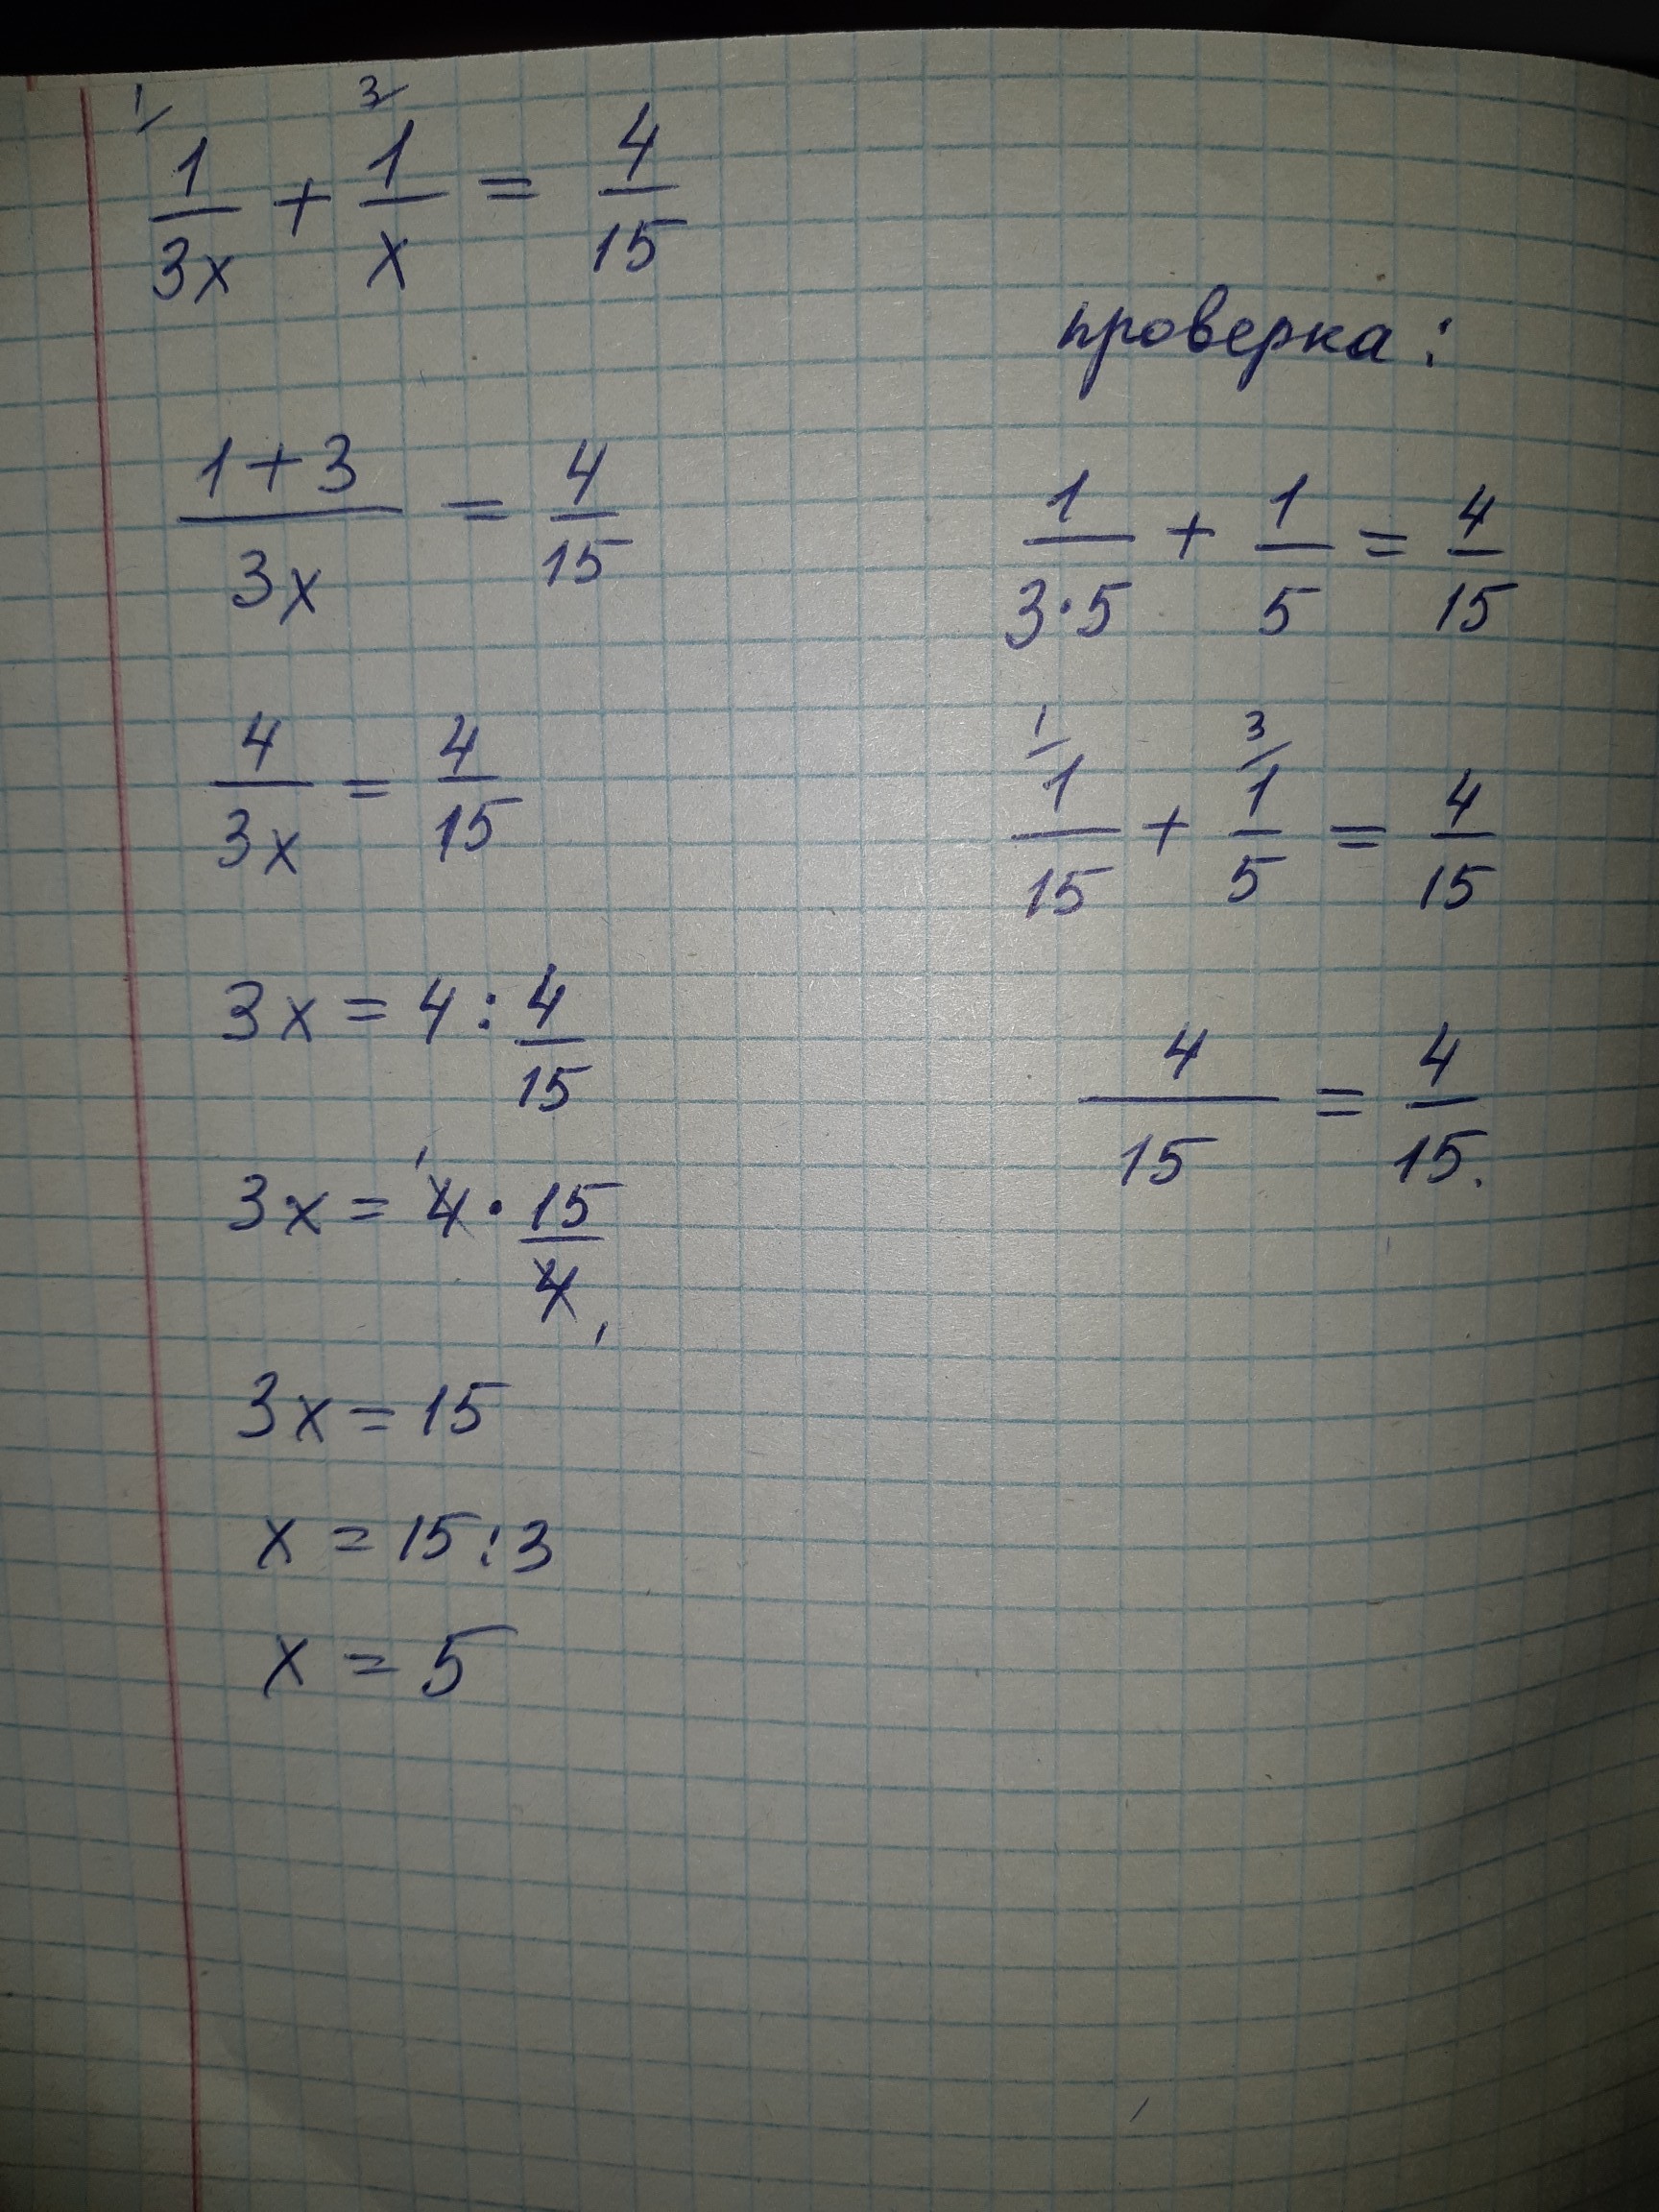 1/ 3/
1/3x + 1/x = 4/15
(1+3)/3x = 4/15
4/3x = 4/15
3x = 4 : 4/15
3x = 4 · 15/4
3x = 15
x = 15 : 3
x = 5
проверка:
1/(3·5) + 1/5 = 4/15
1/ 3/
1/15 + 1/5 = 4/15
4/15 = 4/15.